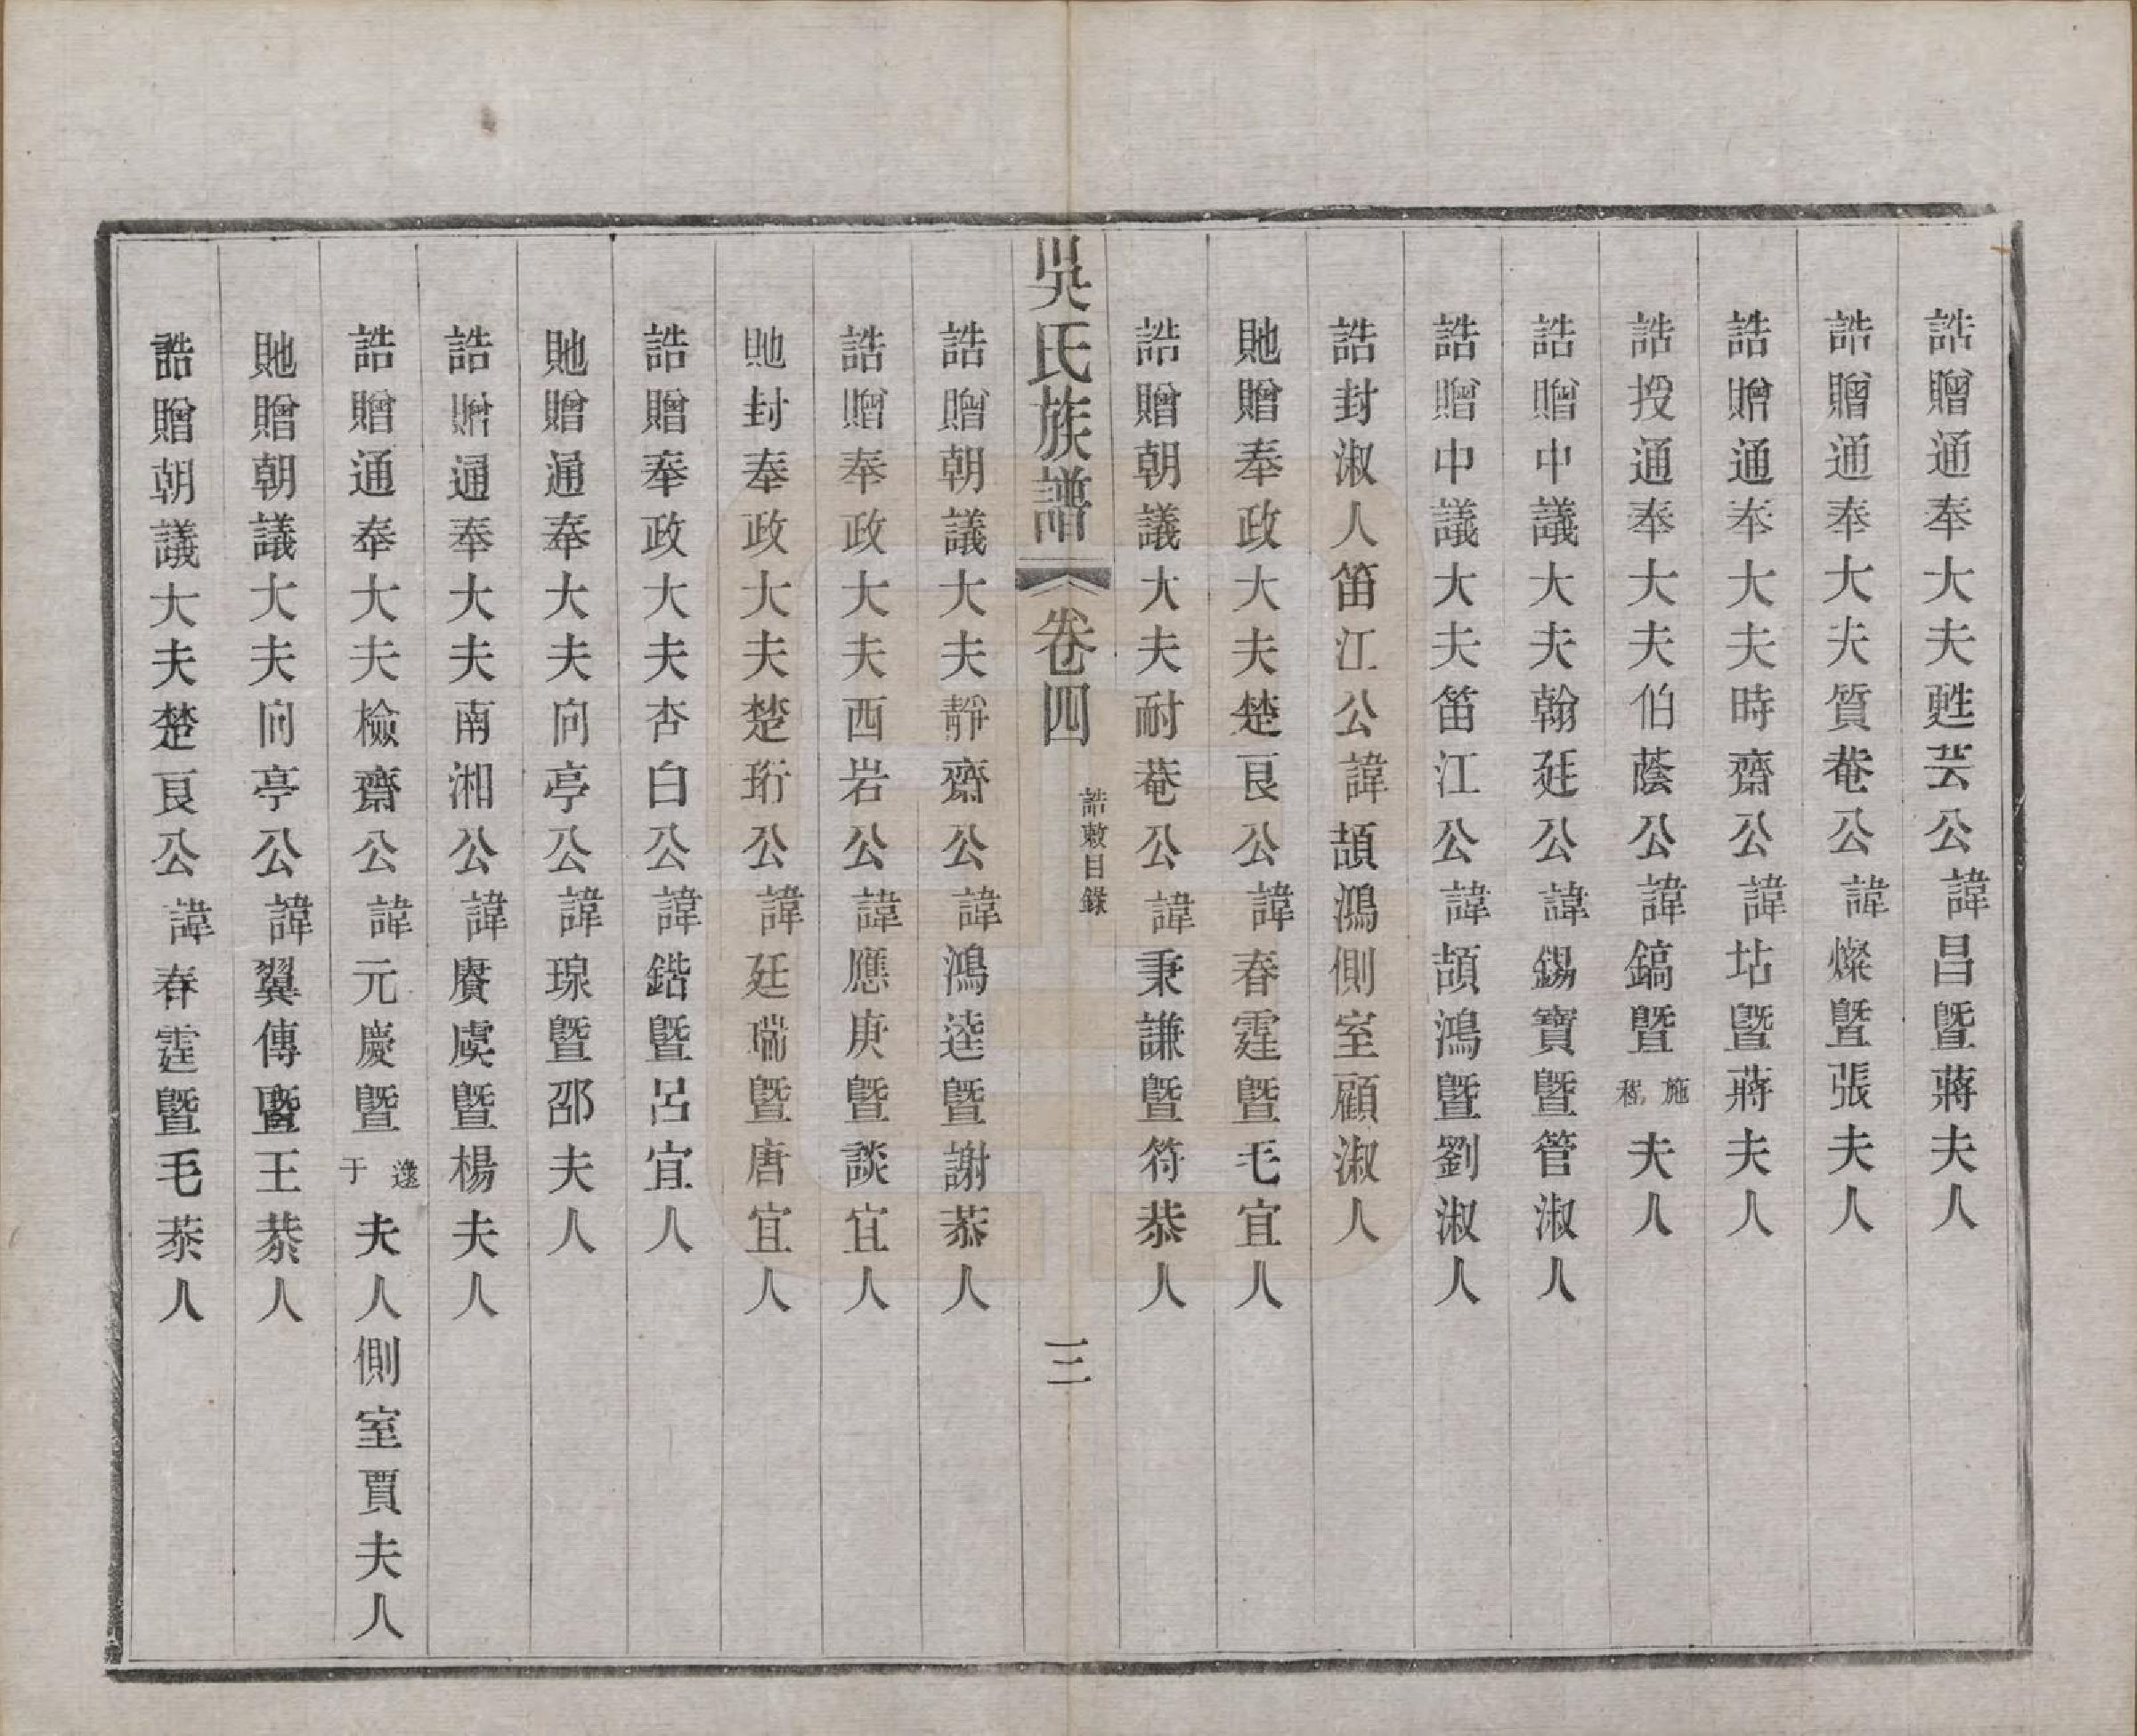 誥贈通奉大夫甦芸公諱昌暨蔣夫人
誥贈通奉大夫質菴公諱燦暨張夫人
誥贈通奉大夫時齋公諱坫暨蔣夫人
誥授通奉大夫伯蔭公諱鎬暨施程夫人
誥贈中議大夫翰廷公諱錫寶暨管淑人
誥贈中議大夫笛江公諱頡鴻暨劉淑人
誥封淑人笛江公諱頡鴻側室顧淑人
貤贈奉政大夫楚艮公諱春霆暨毛宜人
誥贈朝議大夫耐菴公諱秉謙暨符恭人
吳氏族譜 卷四 誥敕目錄 三
誥贈朝議大夫靜齋公諱鴻逵暨謝恭人
誥贈奉政大夫西岩公諱應庚暨談宜人
貤封奉政大夫楚珩公諱廷瑞暨唐宜人
誥贈奉政大夫杏白公諱鍇暨呂宜人
貤贈通奉大夫向亭公諱琅暨邵夫人
誥贈通奉大夫南湘公諱賡虞暨楊夫人
誥贈通奉大夫檢齋公諱元慶暨逯于夫人側室賈夫人
貤贈朝議大夫向亭公諱翼傳暨王恭人
誥贈朝議大夫楚艮公諱春霆暨毛恭人